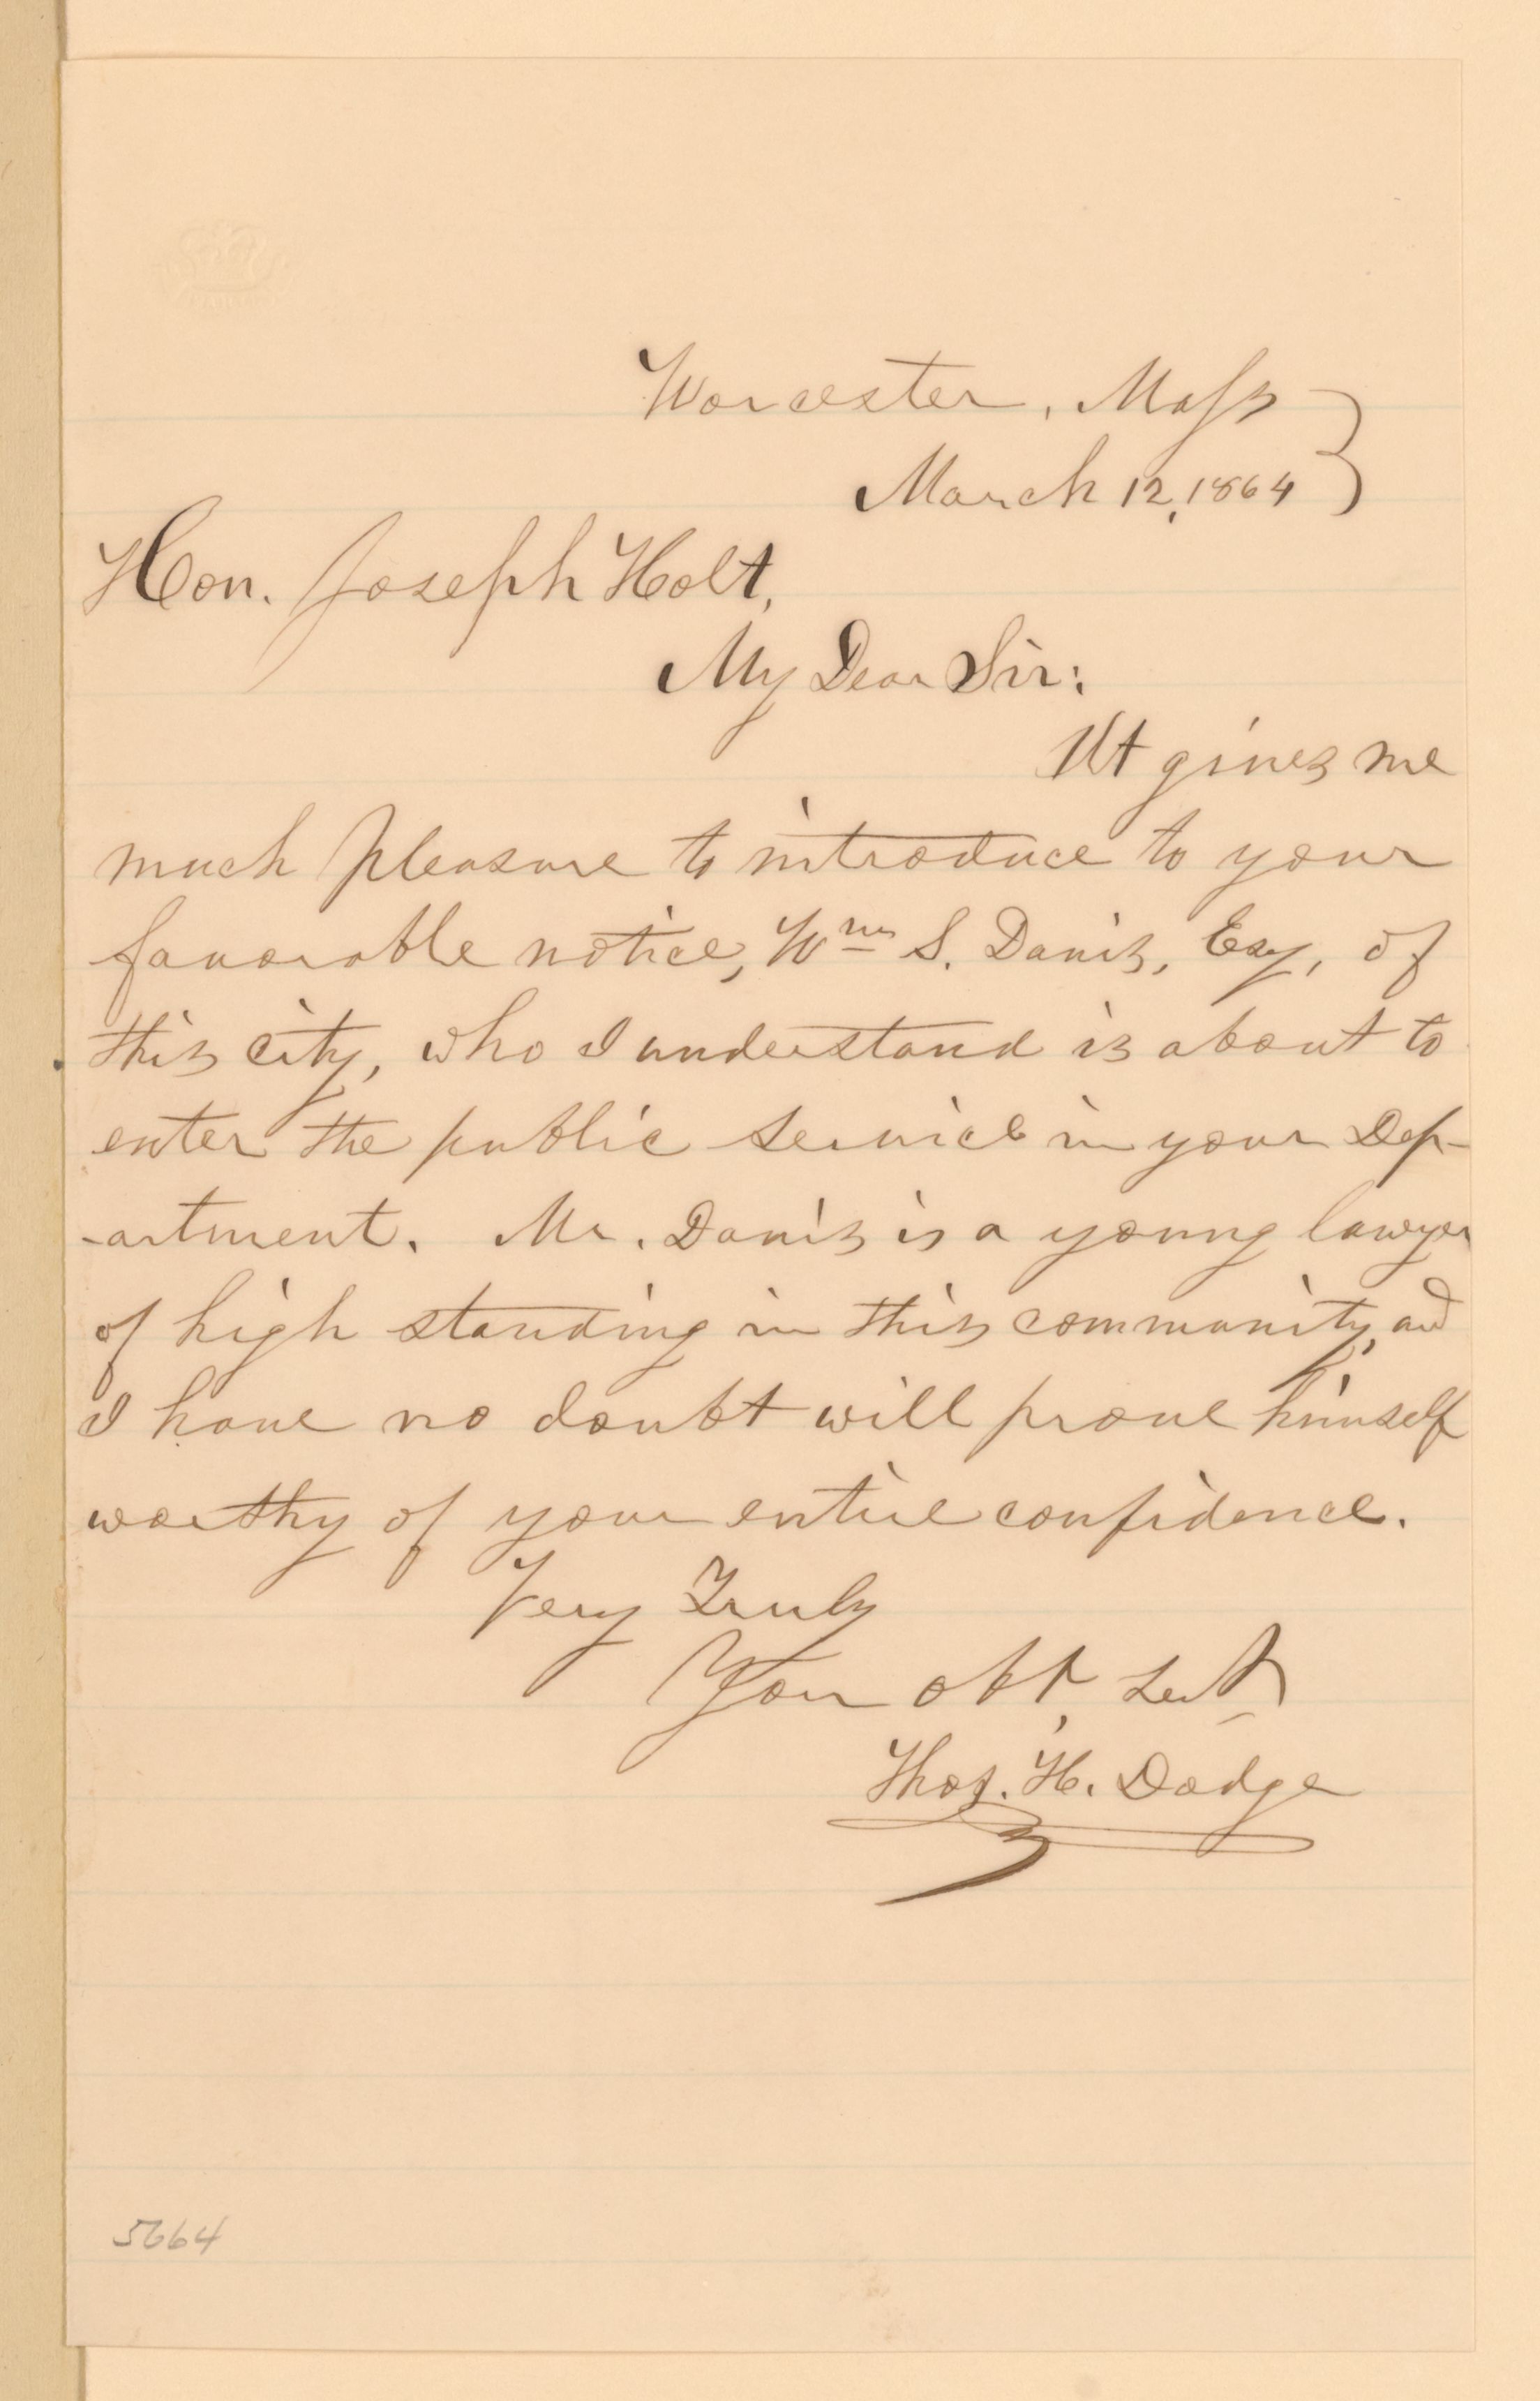 Worcester, Mass
March 12, 1864
Hon. Joseph Holt,
My Dear Sir:
It gives me
much pleasure to introduce to your
favorable notice, Wm S. Davis, Esq, of
this city, who I understand is about to
enter the public service in your Dep-
-artment. Mr. Davis is a young lawyer
of high standing in this community, and
I have no doubt will prove himself
worthy of your entire confidence.
Very Truly
Your obt. Sevt
Thos. H. Dodge
5664